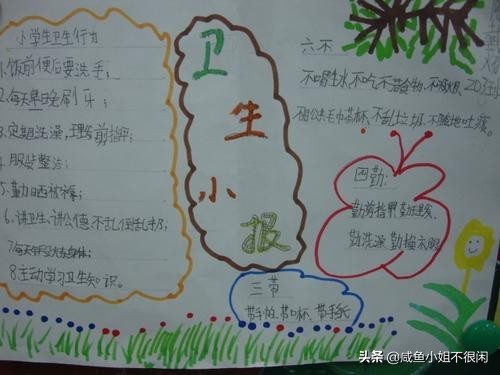 小学生卫生行为
1.饭前便后要洗手;
2.每天早晚刷牙;
3.定期洗澡,理发剪指甲;
4.服装整洁;
5.勤晒被褥;
6.讲卫生、讲公德、不乱倒乱扔;
7.每天
身体;
8.主动学习卫生知识。
卫
生
小
报
六不
不喝生水、不吃不洁食物、不吸烟
不用公共毛巾茶杯、不乱扔垃圾、不随地吐痰。
四勤:
勤剪指甲 勤理发
勤洗澡 勤换衣服
三带
带手帕、带口杯、带手纸
头条 @咸鱼小姐不很闲